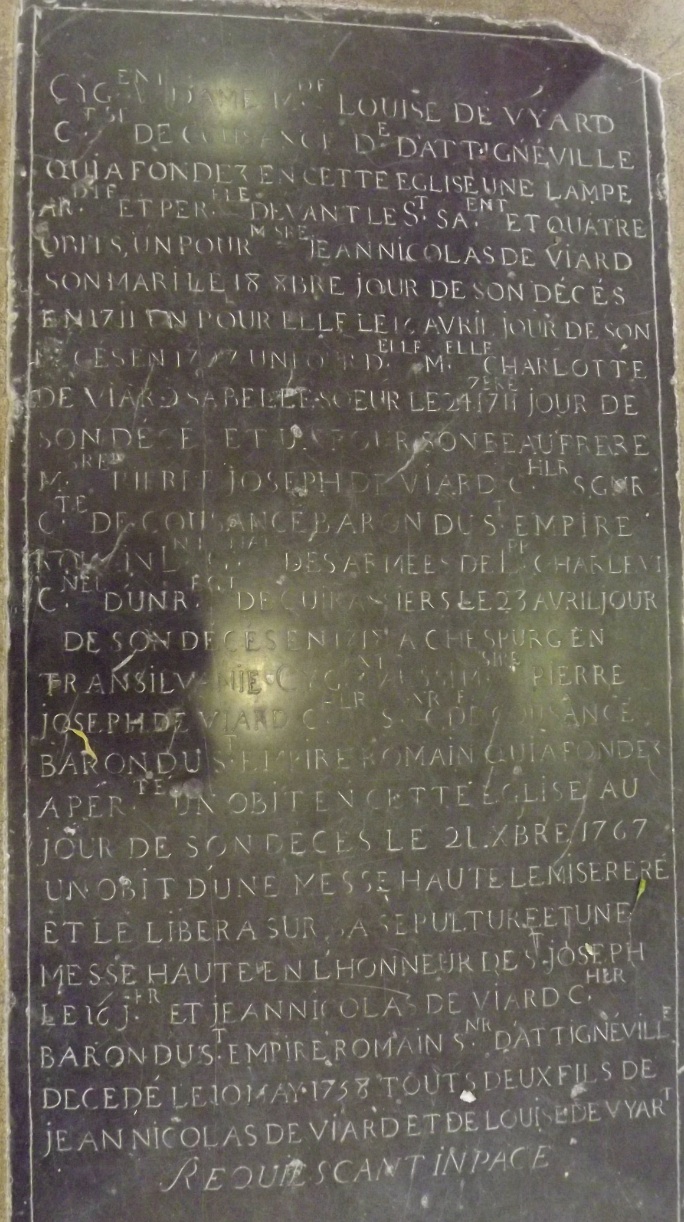 CYG.ENT DAME M.DE LOUISE DE VYARD
C.TSE DE COUSANCE D.E DATTIGNÉVILLE
QUI A FONDEZ EN CETTE EGLISE UNE LAMPE
ET PER. DEVANT LE S.T SA.ENT ET QUATRE
OBITS, UN POUR M.SRE JEAN NICOLAS DE VIARD
SON MARI LE 18 8BRE JOUR DE SON DÉCÉS
EN 1711 UN POUR ELLE LE AVRIL JOUR DE SON
DECÉS EN UN POUR D.ELLE M.ELLE CHARLOTTE
DE VIARD SA BELLE SOEUR LE 24 7BRE 1711 JOUR DE
SON DÉCÉ ET UN POUR SON BEAUFRERE
M.SRE PIERRE JOSEPH DE VIARD C.HLR SGUR
C.TE DE COUSANCE BARON DU S.T EMPIRE
DES ARMÉES DE CHARLE VI
C.NEL DUN R. DE CUIRASSIERS LE 23 AVRIL JOUR
DE SON DÉCÉS EN A CHESPURG EN
TRANSILVANIE CYG AUSSI M.SIRE PIERRE
JOSEPH DE VIARD C.HLR DE COUSANCE
BARON DU S.T EMPIRE ROMAIN QUI A FONDEZ
A PER.TE UN OBIT EN CETTE ÉGLISE AU
JOUR DE SON DECÉS LE 21 XBRE 1767
UN OBIT DUNE MESSE HAUTE LE MISERERE
ET LE LIBERA SUR SA SEPULTURE ET UNE
MESSE HAUTE EN LHONNEUR DE S.T JOSEPH
LE 16 ET JEAN NICOLAS DE VIARD C.HLR
BARON DU S.T EMPIRE ROMAIN S.NR DATTIGNÉVILLE
DECEDÉ LE 10 MAY 1758 TOUTS DEUX FILS DE
JEAN NICOLAS DE VIARD ET DE LOUISE DE VYART
REQUIESCANT IN PACE